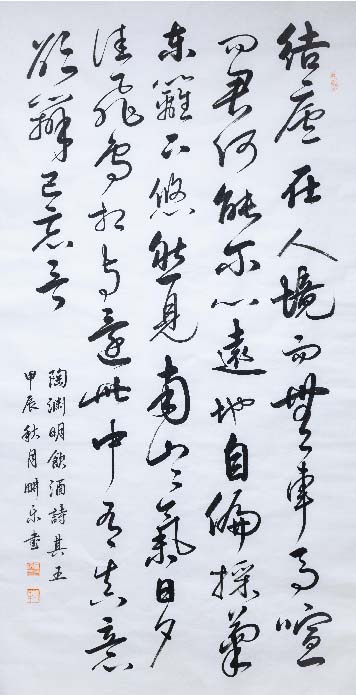 結廬在人境而無車馬喧
问君何能尔心遠地自偏採菊
东籬下悠然見南山〻氣日夕
佳飛鳥相与還此中有真意
欲辨已忘言
陶渊明飲酒詩其五
甲辰秋月畊乐書